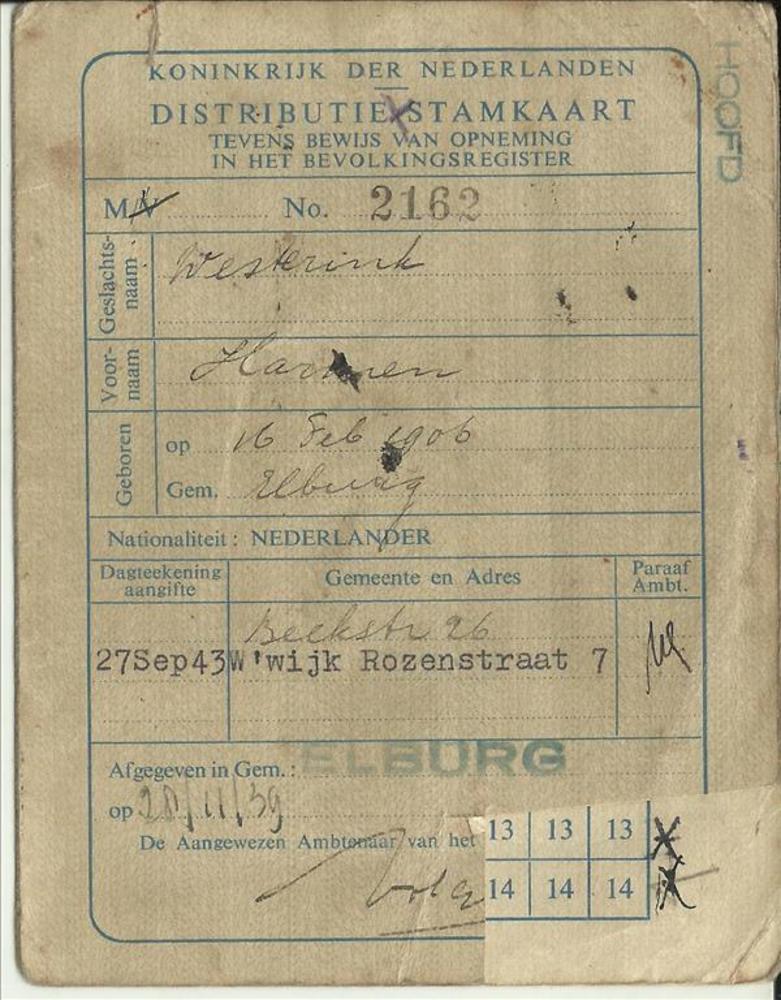 HOOFD
KONINKRIJK DER NEDERLANDEN
DISTRIBUTIE STAMKAART
TEVENS BEWIJS VAN OPNEMING
IN HET BEVOLKINGSREGISTER
M/V No. 2162
Geslachts-
naam
Westerink
Voor-
naam
Harmen
Geboren
op 16 Feb 1906
Gem. Elburg
Nationaliteit : NEDERLANDER
Dagteekening
aangifte
Gemeente en Adres
Paraaf
Ambt.
Beekstr 26
27Sep43 W'wijk Rozenstraat 7
Afgegeven in Gem. : ELBURG
op 28/11/39
De Aangewezen Ambtenaar van het
13 13 13
14 14 14